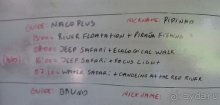 GUIDE NALDO PLUS NICKNAME: PIPINHO
RIVER FLOATATION + PIRAÑA FISHING
JEEP SAFARI + ECOLOGICAL WALK
JEEP SAFARI + FOCUS LIGHT
07:30 WHOLE SAFARI + CANOEING AT THE RED RIVER
GUIDE BRUNO NICKNAME: